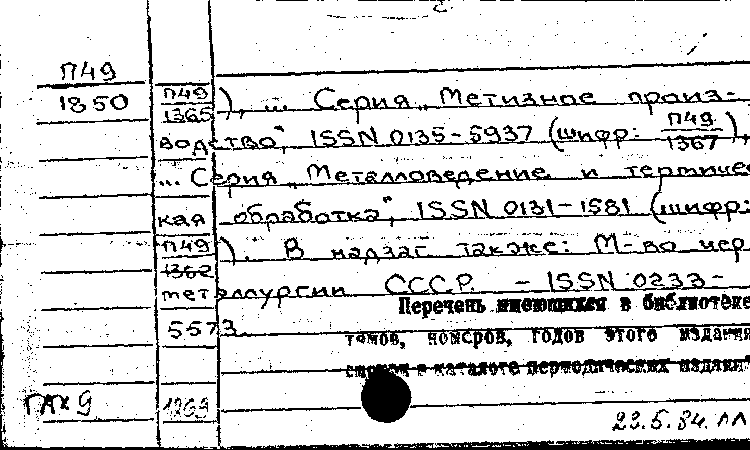 П49
1850
П49
1365 ), ... Серия „Метизное произ-
водство“, ISSN 0135-5937 (шифр: П49
1367 ),
... Серия „Металловедение и термичес
кая обработка“, ISSN 0131-1581 (шифр:
П49
1362 ). В надзаг также: М-во чер
металлургии СССР. - ISSN 0233-
5573.
Перечень имеющихся в библиотеке
томов, номеров, годов этого издания
в каталоге периодических издани
1269
23.5.84.